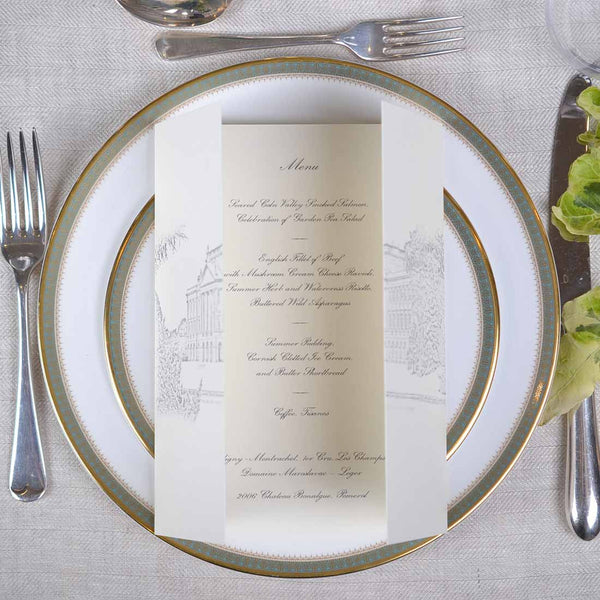 Menu
Seared Cale Valley Smoked Salmon,
Celebration of Garden Pea Salad
English Fillet of Beef
with Mushroom Cream Cheese Ravioli,
Summer Herb and Watercress Risotto,
Buttered Wild Asparagus
Summer Pudding,
Cornish Clotted Ice Cream,
and Butter Shortbread
Coffee, Tisanes
-Montrachet, 1er Cru, Les Champs
Domaine - Leger
2006 Chateau Pomerol